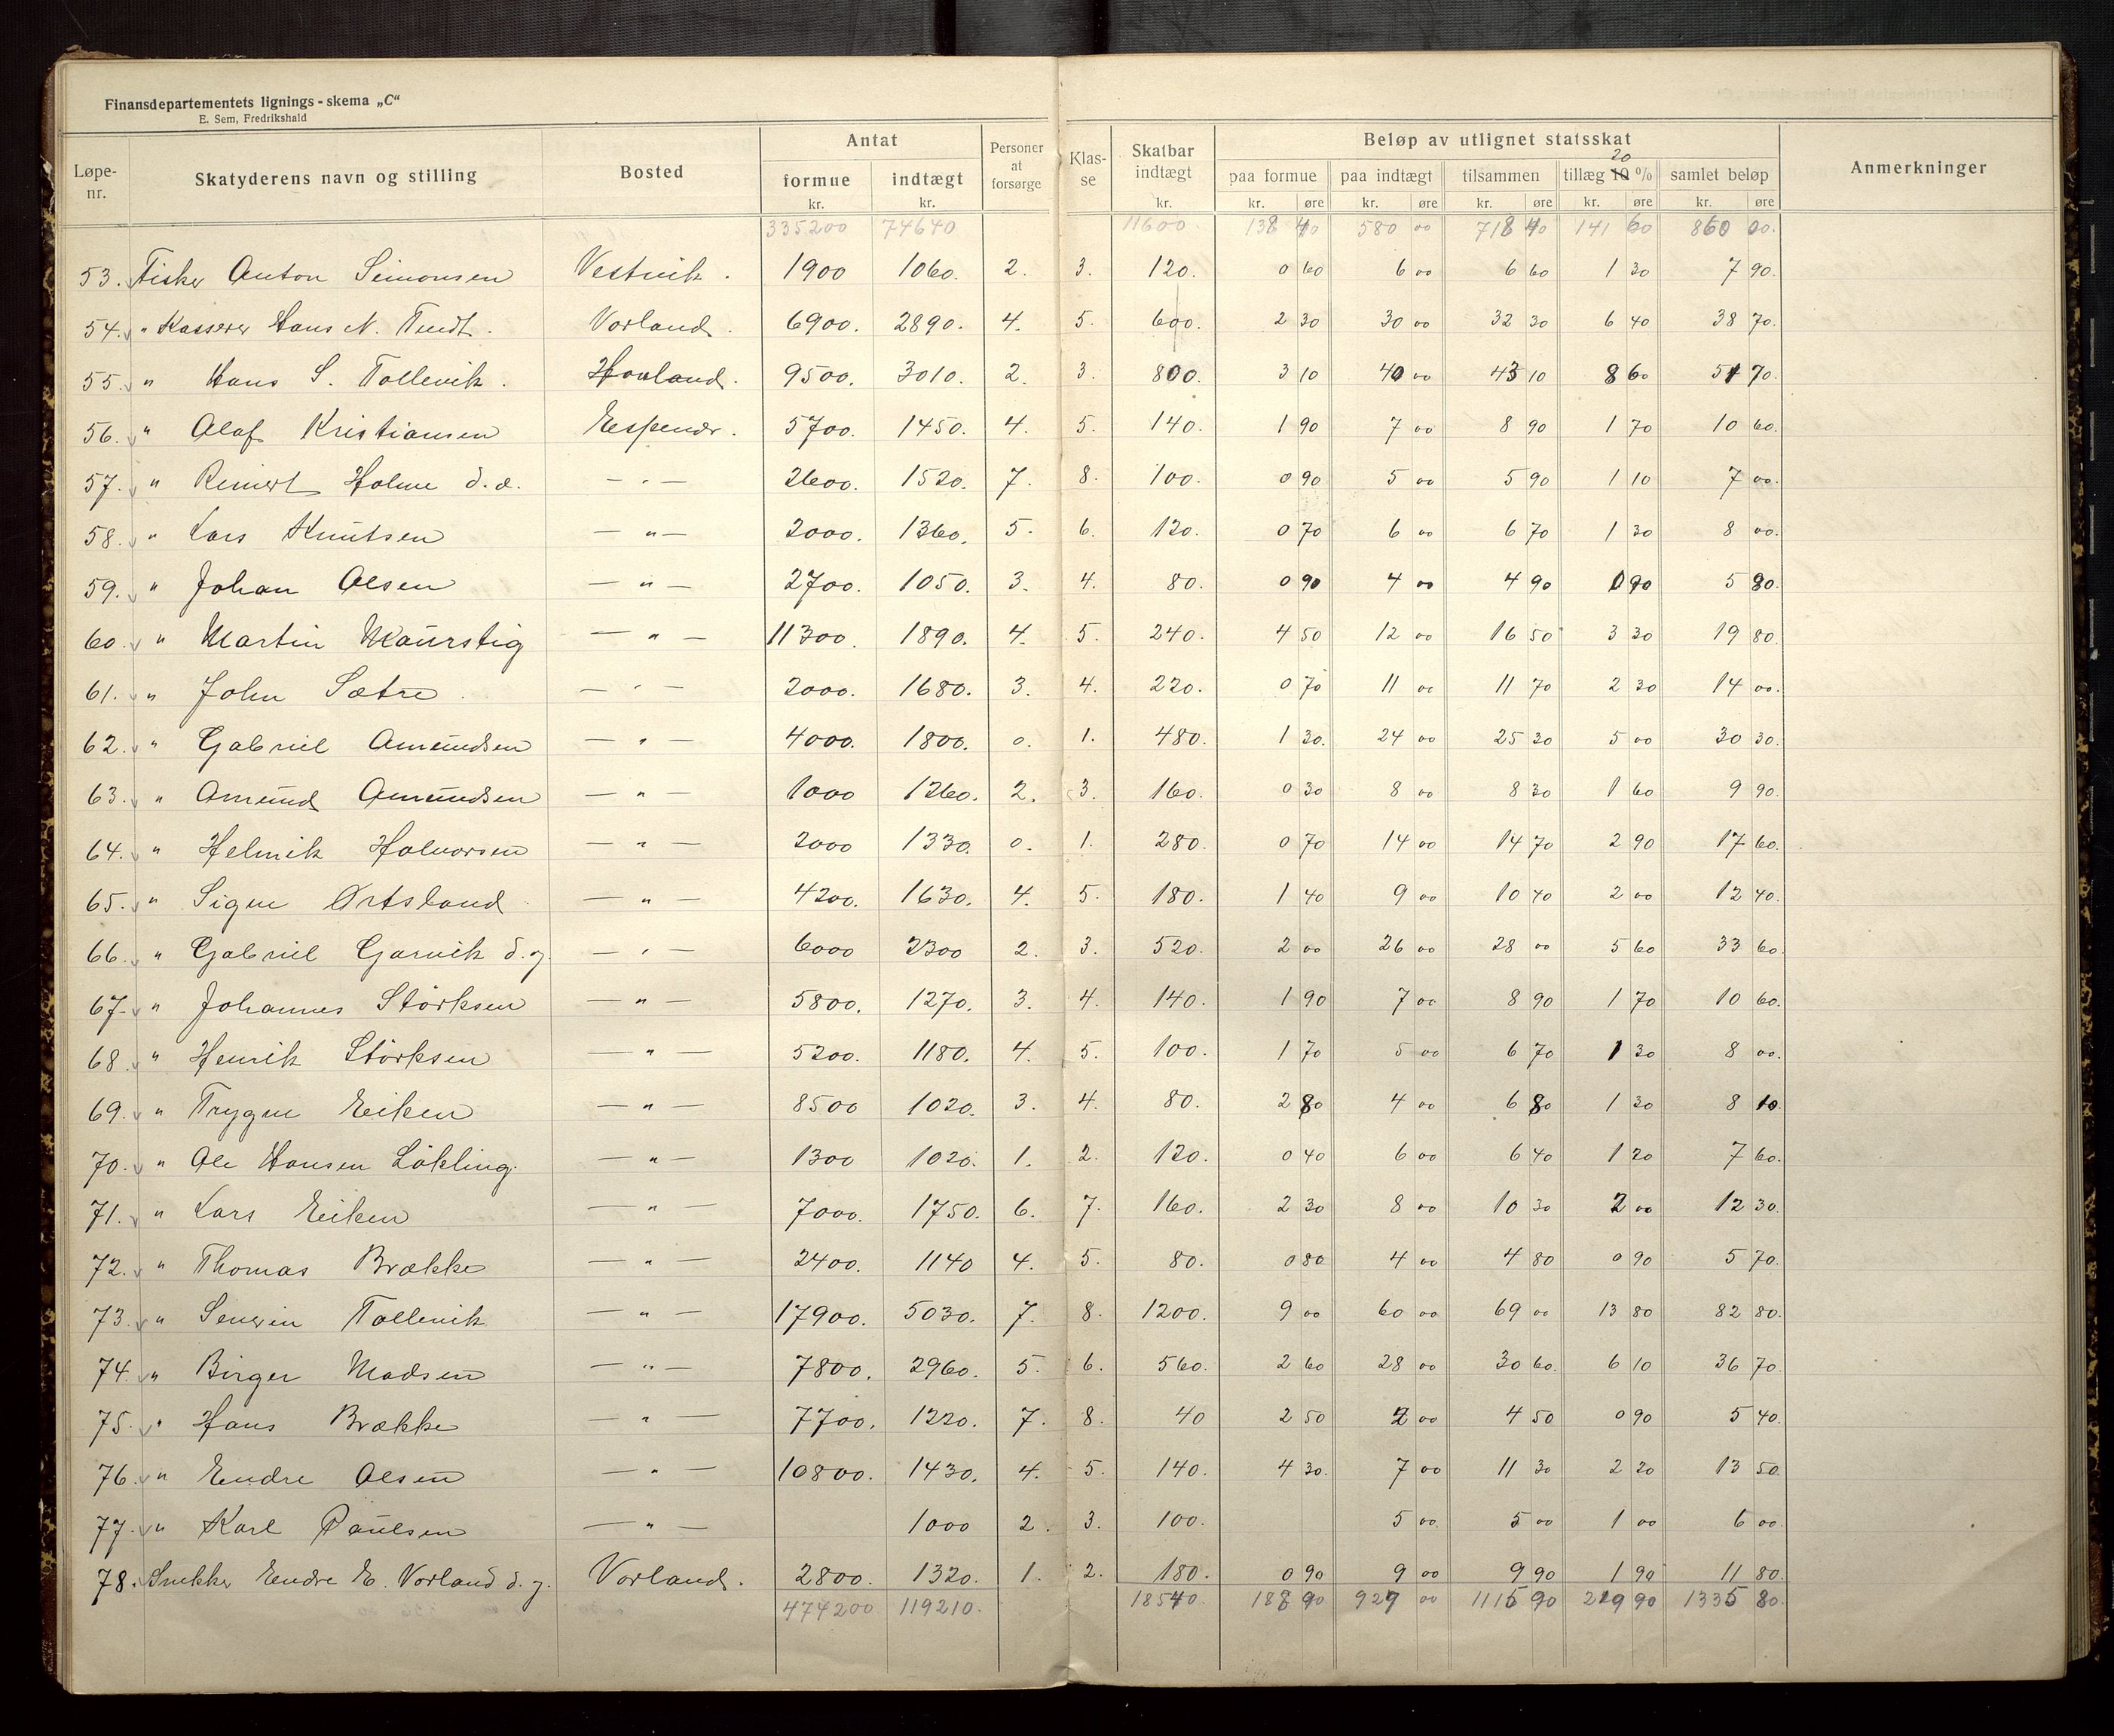 Finansdepartementets lignings-skema „C“
E. Sem, Fredrikshald
Løpe-nr. Skatyderens navn og stilling Bosted Antat formue kr. Antat indtægt kr. Personer at forsørge Klas-se Skatbar indtægt kr. Beløp av utlignet statsskat paa formue kr. øre paa indtægt kr. øre tilsammen kr. øre tillæg 20 % kr. øre samlet beløp kr. øre Anmerkninger
335200 74640 11600 138 40 580 00 718 40 141 60 860 00.
53. Fisker Anton Simonsen Vestvik. 1900 1060. 2. 3. 120. 0 60 6 00 6 60 1 30 7 90.
54. " Kasserer Hans N. Tendt. Vorland. 6900. 2890. 4. 5. 600. 2 30 30 00 32 30 6 40 38 70.
55. " Hans S. Tollevik. Hovland. 9500. 3010. 2. 3. 800. 3 10 40 00 43 10 8 60 51 70.
56. " Olaf Kristiansen Eespendr. 5700. 1450. 4. 5. 140. 1 90 7 00 8 90 1 70 10 60.
57. " Reinert Holme d.æ. — " — 2600. 1520. 7. 8. 100. 0 90 5 00 5 90 1 10 7 00.
58. " Lars Knutsen — " — 2000. 1360. 5. 6. 120. 0 70 6 00 6 70 1 30 8 00.
59. " Johan Olsen — " — 2700. 1050. 3. 4. 80. 0 90 4 00 4 90 0 90 5 80.
60. " Martin Maurstig — " — 11300. 1890. 4. 5. 240. 4 50 12 00 16 50 3 30 19 80.
61. " John Sætre — " — 2000. 1680. 3. 4. 220. 0 70 11 00 11 70 2 30 14 00.
62. " Gabriel Amundsen — " — 4000. 1800. 0. 1. 480. 1 30. 24 00 25 30 5 00 30 30.
63. " Amund Amundsen — " — 1000 1260. 2. 3. 160. 0 30 8 00 8 30 1 60 9 90.
64. " Helmik Halvorsen — " — 2000 1330. 0. 1. 280. 0 70 14 00 14 70 2 90 17 60.
65. " Signe Ortsland — " — 4200. 1630. 4. 5. 180. 1 40 9 00 10 40 2 00 12 40.
66. " Gabriel Garvik d.y. — " — 6000 2300 2. 3. 520. 2 00 26 00 28 00 5 60 33 60.
67. " Johannes Störksen — " — 5800. 1270. 3. 4. 140. 1 90 7 00 8 90 1 70 10 60.
68. " Henrik Störksen — " — 5200. 1180. 4. 5. 100. 1 70 5 00 6 70 1 30 8 00.
69. " Trygve Eiken — " — 8500 1020. 3. 4. 80. 2 80 4 00 6 80 1 30 8 10.
70. " Ole Hansen Lökling. — " — 1300 1020. 1. 2. 120. 0 40 6 00 6 40 1 20 7 60.
71. " Lars Eiken — " — 7000. 1750. 6. 7. 160. 2 30 8 00 10 30 2 00 12 30.
72. " Thomas Brække — " — 2400. 1140 4. 5. 80. 0 80 4 00 4 80 0 90 5 70.
73. " Severin Tollevik — " — 17900. 5030. 7. 8. 1200. 9 00 60 00 69 00 13 80 82 80.
74. " Birger Madsen — " — 7800. 2960. 5. 6. 560. 2 60 28 00 30 60. 6 10 36 70.
75. " Hans Brække — " — 7700. 1220. 7. 8. 40 2 50 2 00 4 50 0 90 5 40.
76. " Endre Olsen — " — 10800. 1430. 4. 5. 140. 4 30. 7 00 11 30 2 20 13 50.
77. " Karl Paulsen — " — 1000 2. 3. 100. 5 00. 5 00 1 00 6 00.
78. Snekker Endre E. Vorland d.y. Vorland. 2800. 1320. 1. 2. 180. 0 90 9 00 9 90 1 90 11 80.
474200 119210. 18540. 188 90 927 00 1115 90 219 90 1335 80.